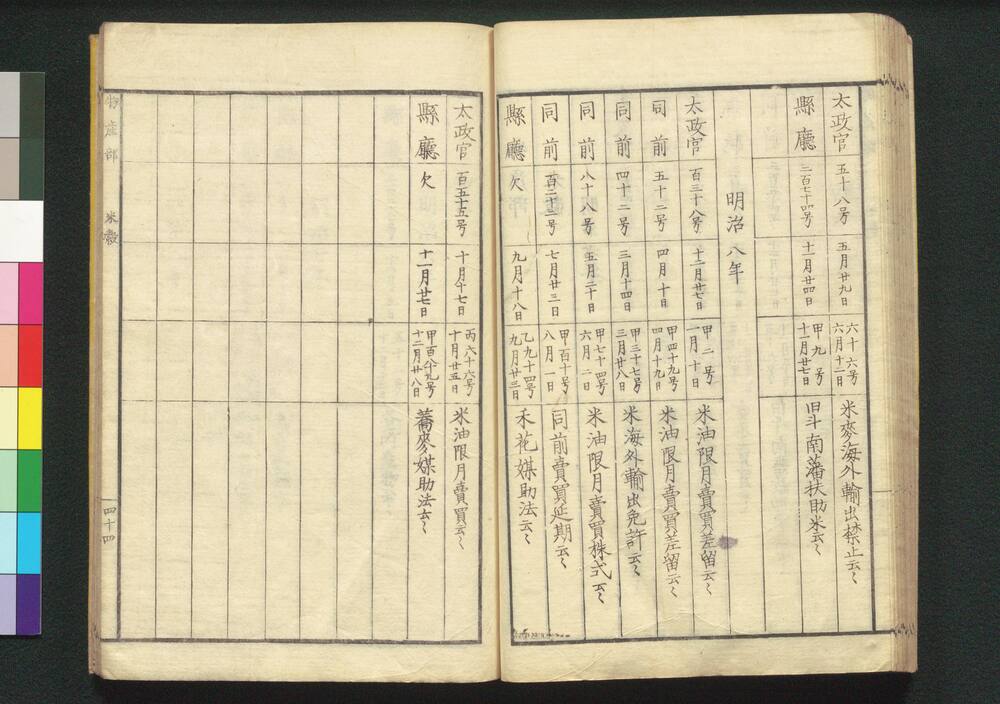 太政官 五十八号 五月廿九日 六十六号 六月十二日 米麥海外輸出禁止云〻
縣廳 二百七十四号 十一月廿四日 甲九号 十一月廿七日 旧斗南藩扶助米云〻
明治八年
太政官 百三十八号 十二月廿七日 甲二号 一月十日 米油限月賣買差留云〻
同前 五十二号 四月十日 甲四十九号 四月十九日 米油限月賣買差留云〻
同前 四十二号 三月十四日 甲三十七号 三月廿八日 米海外輸出免許云〻
同前 八十八号 五月二十日 甲七十四号 六月二日 米油限月賣買株式云〻
同前 百二十二号 七月廿三日 甲百十号 八月一日 同前賣買延期云〻
縣廳 欠 九月十八日 乙九十四号 九月廿三日 禾花媒助法云〻
太政官 百五十五号 十月十七日 丙六十六号 十月廿五日 米油限月賣買云〻
縣廳 欠 十一月廿七日 甲百八十九号 十二月廿八日 蕎麥媒助法云〻
物産部 米穀 四十四